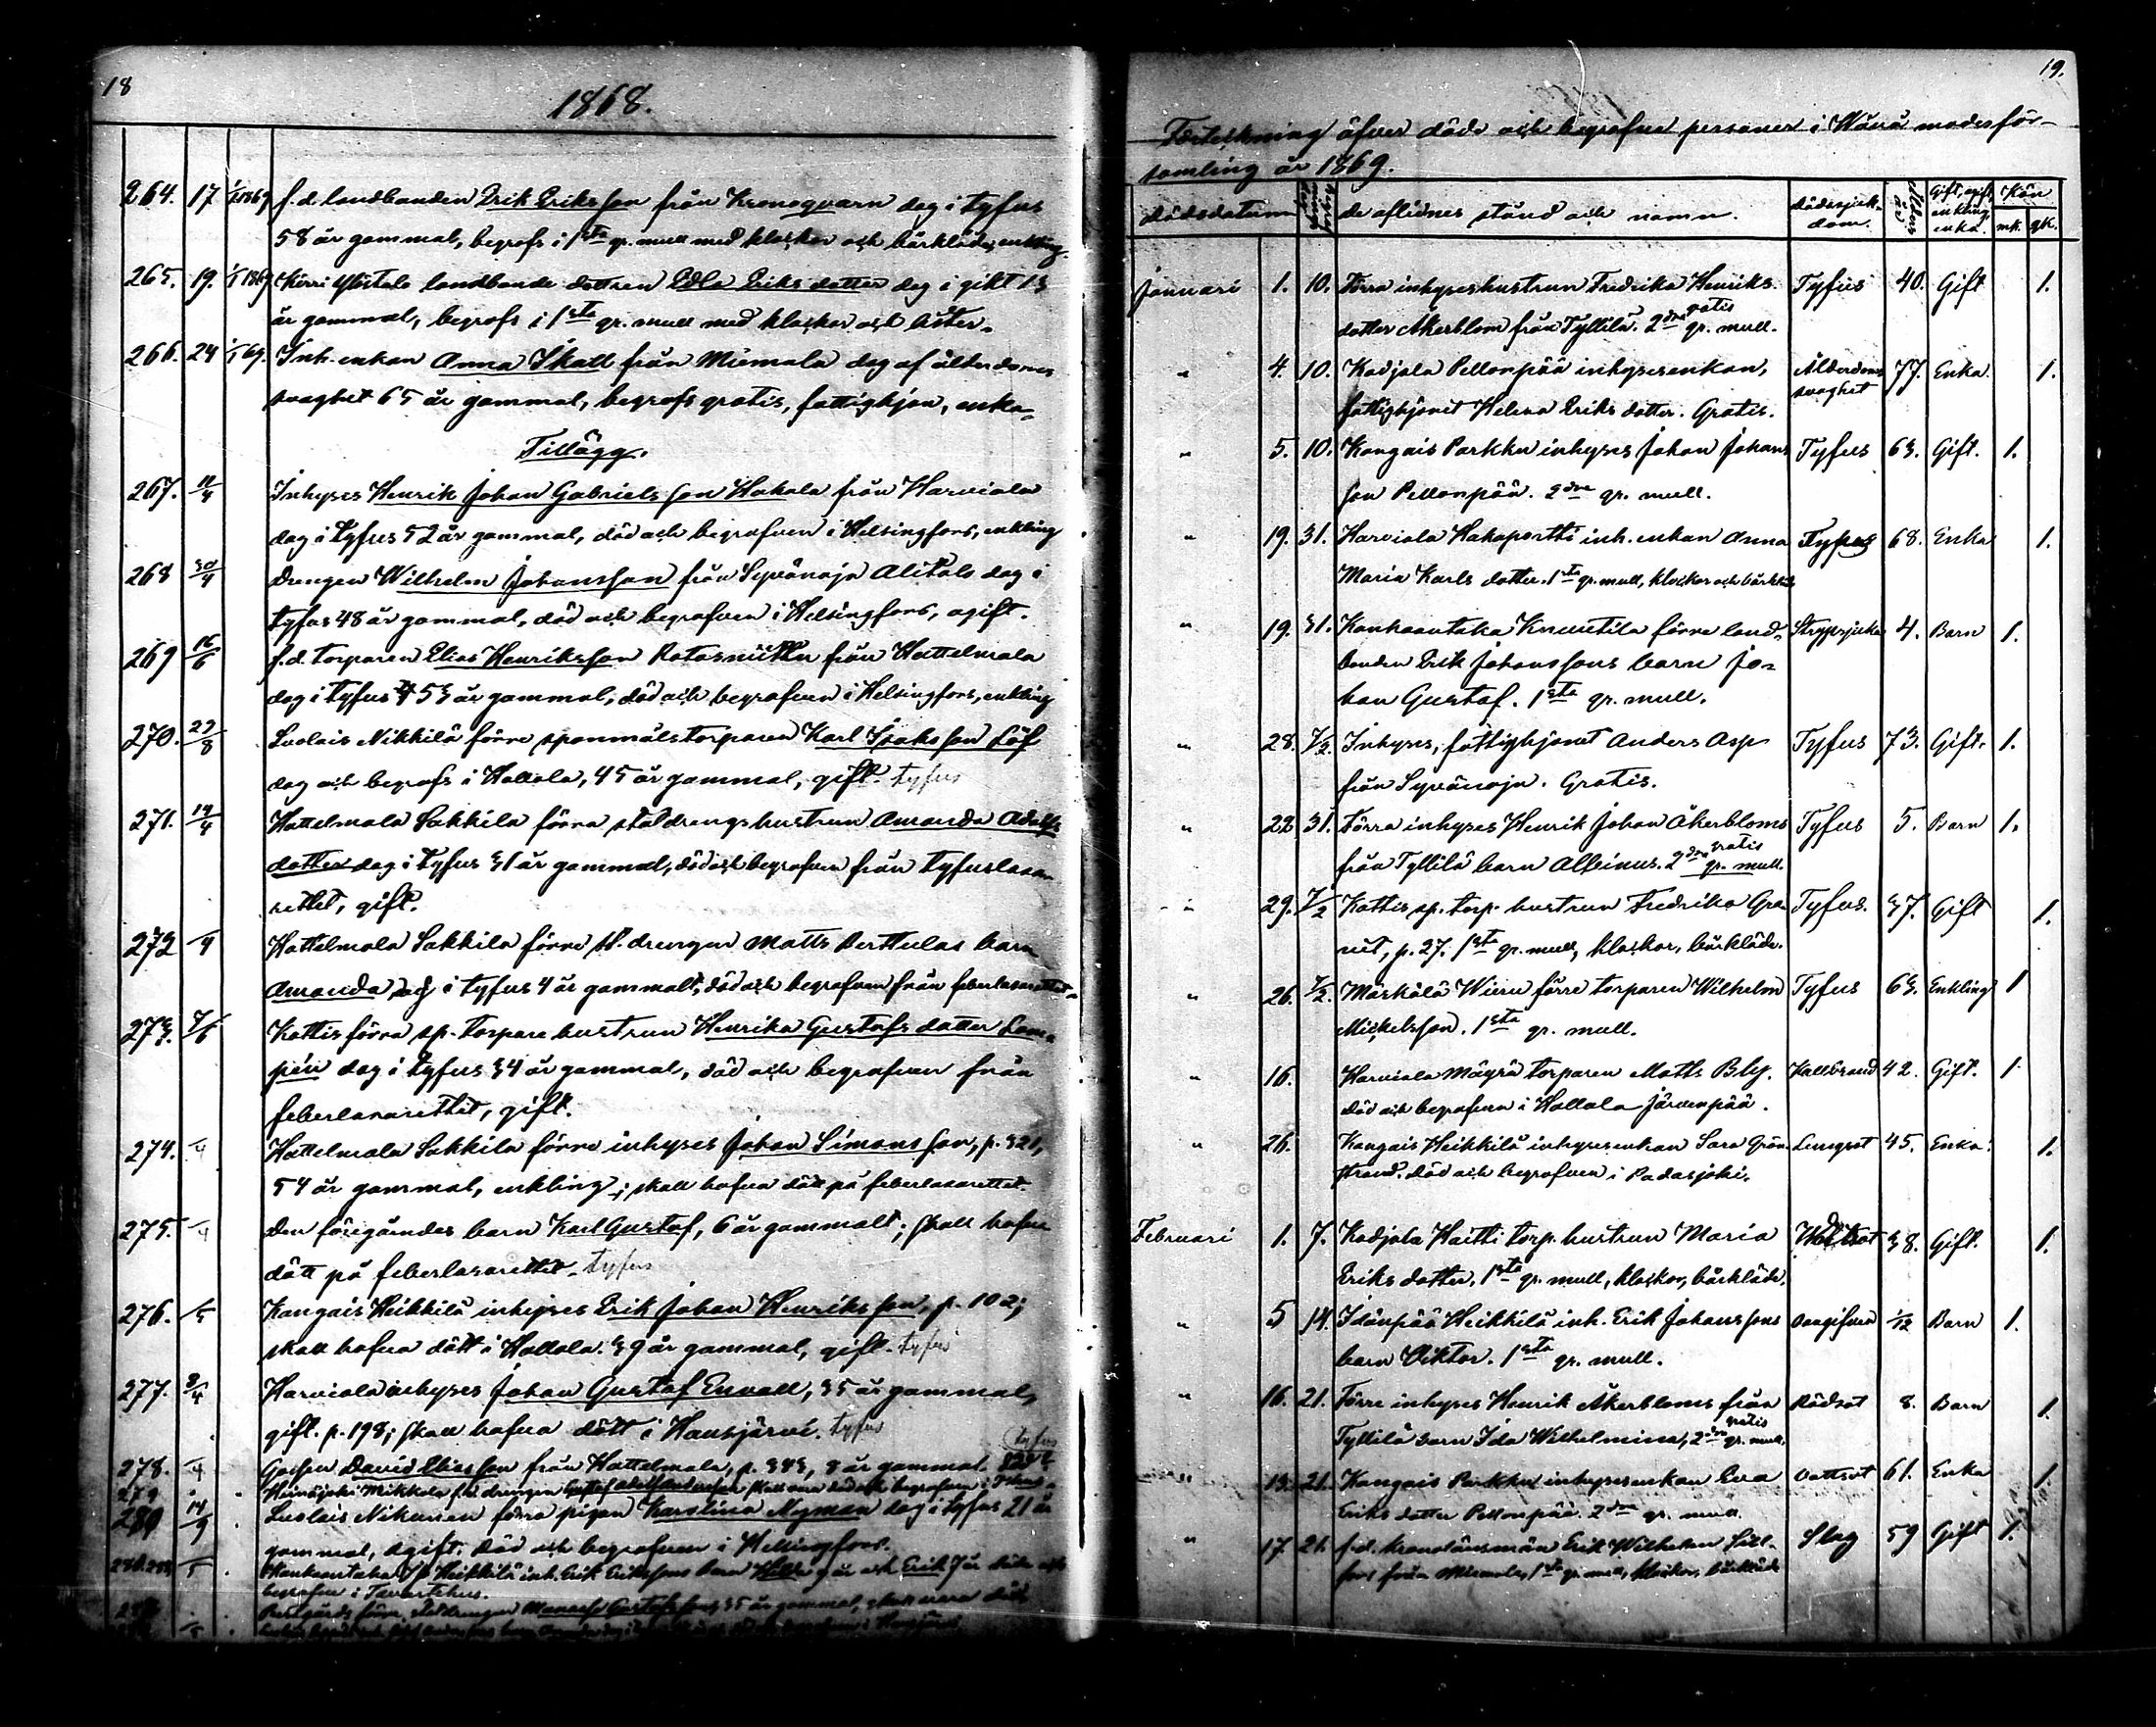 18
1868.
264. 17 1/1 1869 f.d. landbonden Erik Eriksson från Kronoqvarn dog i tyfus
58 år gammal, begrofs i 1sta gr. mull med klockor och bårkläde, enkling.
265. 19. 1/1 1869 Kirri Ylöstalo landbonde dottren Edla Eriks dotter dog i gikt 13
år gammal, begrofs i 1sta gr. mull med klockor och
266. 24 1/1 69. Inh. enkan Anna Skall från Miemala dog af ålderdoms
svaghet 65 år gammal, begrofs gratis, fattighjon, enka.
Tillägg.
267. 11/4 Inhyses Henrik Johan Gabriels son Hakala från Harviala
dog i tyfus 52 år gammal, död och begrafven i Helsingfors, enkling
268 30/4 Drengen Wilhelm Johansson från Syvänoja Alitalo dog i
tyfus 48 år gammal, död och begrafven i Helsingfors, ogift.
269 16/6 f.d. torparen Elias Henriksson Rotasniittu från Hattelmala
dog i tyfus 53 år gammal, död och begrafven i Helsingfors, enkling
270. 23/8 Luolais Nikkilä förre spanmålstorparen Karl Isaksson Löf
dog och begrofs i Hollola, 45 år gammal, gift. tyfus
271. 14/4 Hattelmala Sakkila förra ståldrengs hustrun Amanda Adolfs
dotter dog i tyfus 31 år gammal, död och begrafven från tyfuslasa
rettet, gift.
272 /4 Hattelmala Sakkila förre st. drengen Matts Berttulas barn
Amanda, dog i tyfus 4 år gammalt, död och begrafven från feberlasarettet.
273. 7/6 Kattis förra sp. torpare hustrun Henrika Gustafs dotter Lam
pén dog i tyfus 34 år gammal, död och begrafven från
feberlasarettet, gift.
274. /4 Hattelmala Sakkila förre inhyses Johan Simons son, p. 321,
54 år gammal, enkling; skall hafva dött på feberlasarettet.
275. /4 Den föregåendes barn Karl Gustaf, 6 år gammalt; skall hafva
dött på feberlasarettet. tyfus
276. /5 Kangais Heikkilä inhyses Erik Johan Henriksson, p. 102;
skall hafva dött i Hollola. 39 år gammal, gift. tyfus
277. 8/4 Harviala inhyses Johan Gustaf Envall, 35 år gammal,
gift. p. 198; skall hafva dött i Hausjärvi. tyfus
278. /4 Gossen David Eliasson från Hattelmala, p. 343, 8 år gammal. tyfus
279 Heinäjoki Mikkola f.d. drengen Gustaf skall vara död och begrafven i
280 14/9 Luolais Nikunen förra pigan Karolina Nyman dog i tyfus 21 år
gammal, ogift, död och begrafven i Helsingfors.
/5 Kankaantaka Heikkilä inh. Erik Erikssons barn år och Erik 7 år döde och
begrafne i Tavastehus.
förre 35 år gammal, skall vara död

19.
Förteckning öfver döde och begrafne personer i Wånå moderför-
samling år 1869.
dödsdatum de aflidnes stånd och namn. dödssjuk-dom. Ålders år Gift, ogift, enkling enka. Kön mk. qk.
Januari 1. 10. Förra inhyseshustrun Fredrika Henriks Tyfus 40. Gift 1.
dotter Åkerblom från Tyllilä. 2dra gr. mull. gratis
" 4. 10. Kadjala Pellonpää inhysesenkan, Ålderdoms 77. Enka. 1.
fattighjonet Helena Eriks dotter. Gratis. svaghet
" 5. 10. Kangais Parkku inhyses Johan Johans Tyfus 63. Gift. 1.
son Pellonpää. 2dra gr. mull.
" 19. 31. Harviala Hakaportti inh. enkan Anna Tyfus 68. Enka 1.
Maria Karls dotter. 1sta gr. mull, klockor och bårkläde
" 19. 31. Kankaantaka Knuutila förre land- Strypsjuka 4. Barn 1.
bonden Erik Johanssons barn Jo-
han Gustaf. 1sta gr. mull.
" 28. 7/2. Inhyses, fattighjonet Anders Asp Tyfus 73. Gift. 1.
från Syvänoja. Gratis.
" 22 31. Förra inhyses Henrik Johan Åkerbloms Tyfus 5. Barn 1.
från Tyllilä barn Albinus. 2dra gr. mull. gratis
" 29. 7/2 Kattis sp. torp. hustrun Fredrika Gra- Tyfus. 37. Gift 1.
nit, p. 27. 1sta gr. mull, klockor, bårkläde.
" 26. 7/2. Mäskälä Wieru förre torparen Wilhelm Tyfus 63. Enkling 1
Mickelsson. 1sta gr. mull.
" 16. Harviala Mäyrä torparen Matts Bly. Kallbrand 42. Gift. 1.
död och begrafven i Hollola Järvenpää.
" 26. Kangais Heikkilä inhysesenkan Sara Grön- Lungsot 45. Enka. 1.
strand. död och begrafven i Padasjoki.
Februari 1. 7. Kadjala Haitti torp. hustrun Maria 38. Gift. 1.
Eriks dotter, 1sta gr. mull, klockor, bårkläde.
" 5 14. Idänpää Heikkilä inh. Erik Johanssons oangifven 1/12 Barn 1.
barn Viktor. 1sta gr. mull.
" 16. 21. Förre inhyses Henrik Åkerbloms från Rödsot 8. Barn 1.
Tyllilä barn Ida Wilhelmina, 2dra gr. mull. gratis
" 13. 21. Kangais Parkku inhysesenkan Eva Vattsot 61. Enka 1.
Eriks dotter Pellonpää. 2dra gr. mull.
" 17. 21. f.d. kronolänsman Erik Wilhelm Slag 59 Gift 1.
från Miemala, 1sta gr. mull, klockor, bårkläde